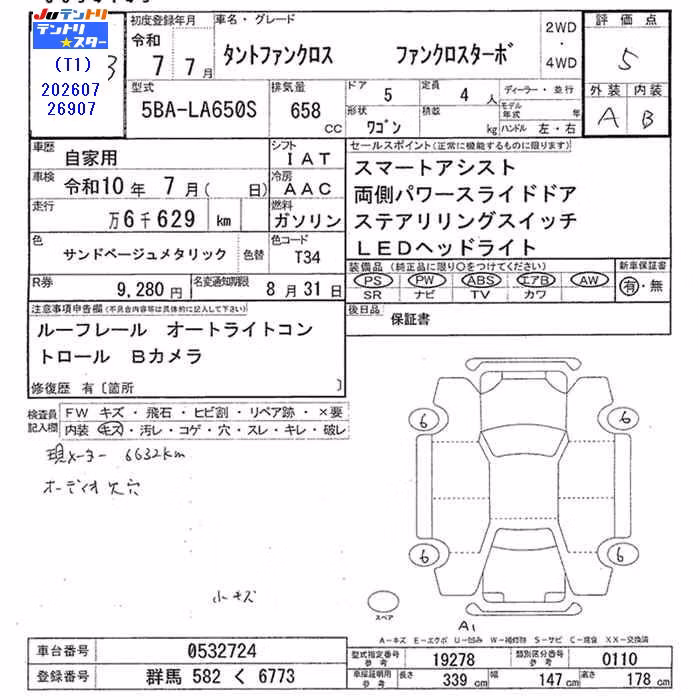 Juテントリ
テントリ
★スター
(T1)
202607
26907
3
初度登録年月
令和
7 7月
車名・グレード
タントファンクロス ファンクロスターボ
2WD
・
4WD
評価点
5
外装 内装
A B
型式
5BA-LA650S
排気量
658
CC
ドア
5
定員
4人
形状
ワゴン
積載
kg
ディーラー・並行
モデル年式 年
ハンドル 左・右
車歴
自家用
シフト
IAT
車検
令和10年 7月( 日)
冷房
AAC
走行
万6千629 km
燃料
ガソリン
色
サンドベージュメタリック
色替
色コード
T34
R券
9,280円
名変通知期限
8月31日
セールスポイント(正常に機能するものに限ります)
スマートアシスト
両側パワースライドドア
ステアリリングスイッチ
LEDヘッドライト
装備品(純正品に限り○をつけてください)
PS PW ABS エアB AW
SR ナビ TV カワ
新車保証書
有・無
後日品
保証書
注意事項申告欄(不具合内容等は具体的に記入して下さい)
ルーフレール オートライトコン
トロール Bカメラ
修復歴 有〔箇所 〕
検査員
記入欄
FW キズ・飛石・ヒビ割・リペア跡・×要
内装・キズ・汚レ・コゲ・穴・スレ・キレ・破レ
現メーター 6632km
オーディオ欠穴
小キズ
6
6
6
6
スペア
A1
A-キズ E-エクボ U-凹み W-補修跡 S-サビ C-腐食 XX-交換済
車台番号
0532724
登録番号
群馬 582 く 6773
型式指定番号
参考
19278
類別区分番号
参考
0110
車庫証明用
参考
長さ
339 cm
幅
147 cm
高さ
178 cm